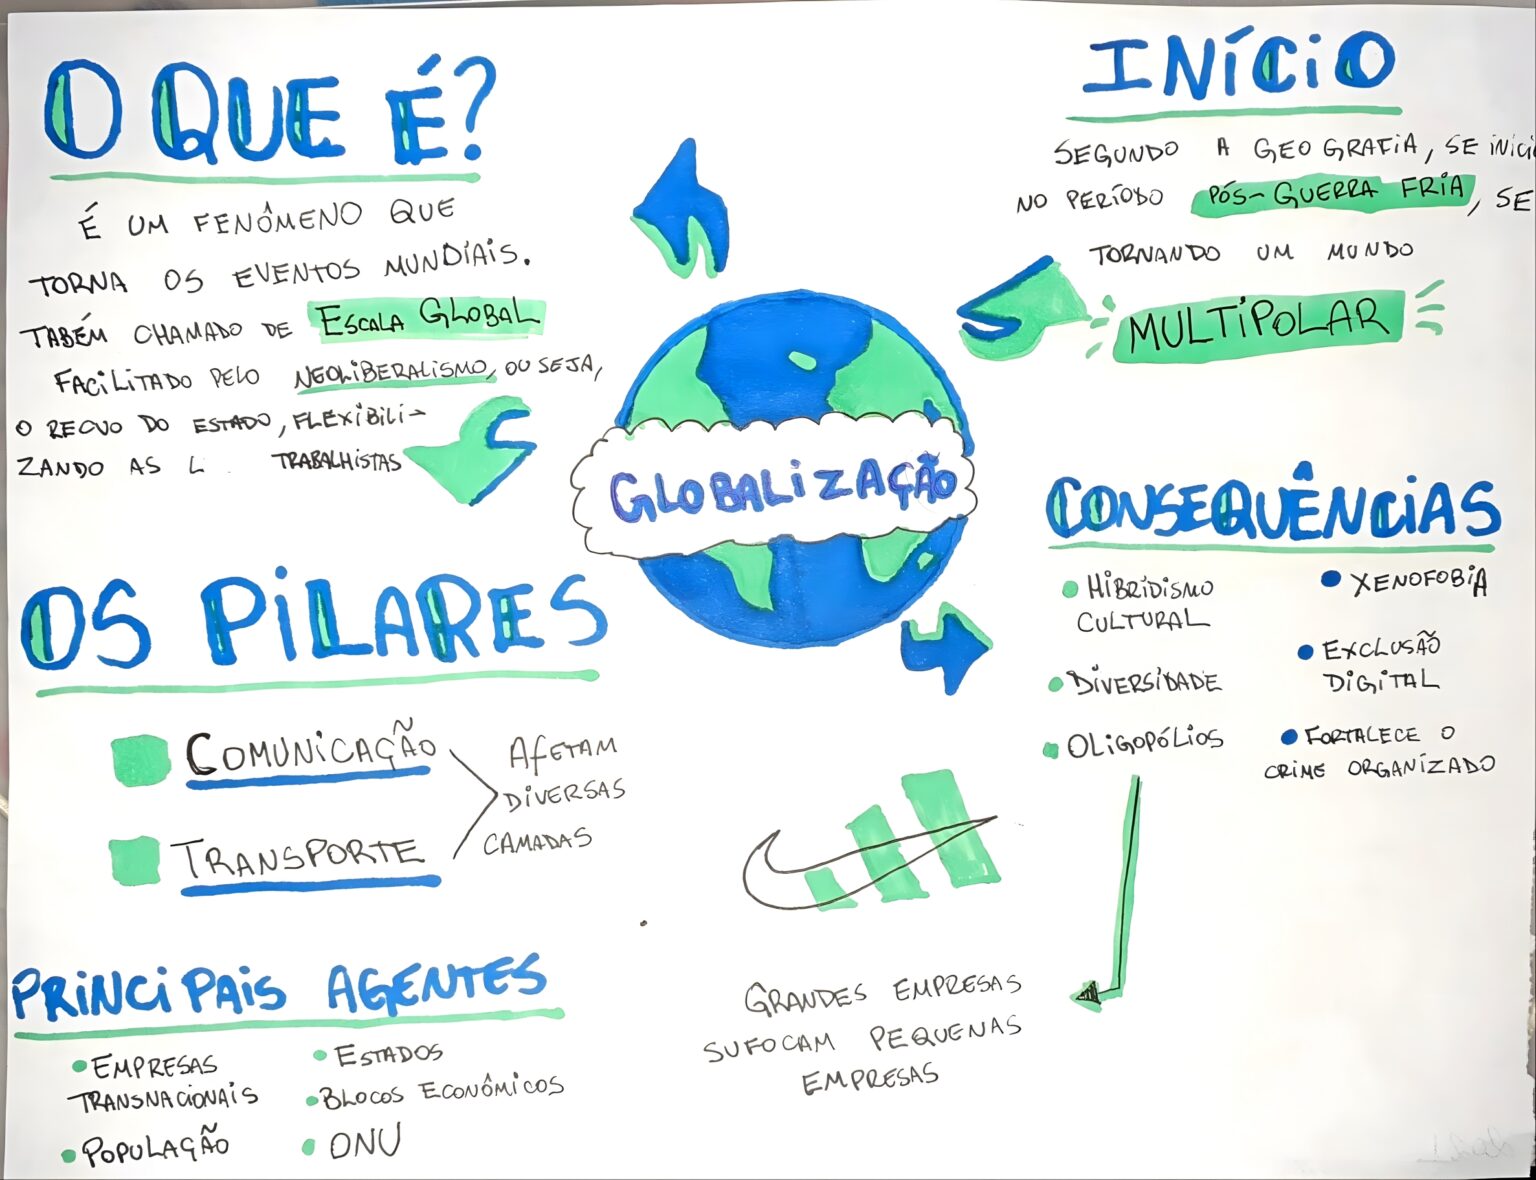 O QUE É?
É UM FENÔMENO QUE
TORNA OS EVENTOS MUNDIAIS.
TABÉM CHAMADO DE ESCALA GLOBAL
FACILITADO PELO NEOLIBERALISMO, OU SEJA,
O RECUO DO ESTADO, FLEXIBILI-
ZANDO AS L TRABALHISTAS
OS PILARES
COMUNICAÇÃO
TRANSPORTE
AFETAM
DIVERSAS
CAMADAS
PRINCIPAIS AGENTES
EMPRESAS
TRANSNACIONAIS
POPULAÇÃO
ESTADOS
BLOCOS ECONÔMICOS
ONU
GLOBALIZAÇÃO
INÍCIO
SEGUNDO A GEOGRAFIA, SE INICI
NO PERÍODO PÓS-GUERRA FRIA, SE
TORNANDO UM MUNDO
MULTIPOLAR
CONSEQUÊNCIAS
HIBRIDISMO
CULTURAL
DIVERSIDADE
OLIGOPÓLIOS
XENOFOBIA
EXCLUSÃO
DIGITAL
FORTALECE O
CRIME ORGANIZADO
GRANDES EMPRESAS
SUFOCAM PEQUENAS
EMPRESAS